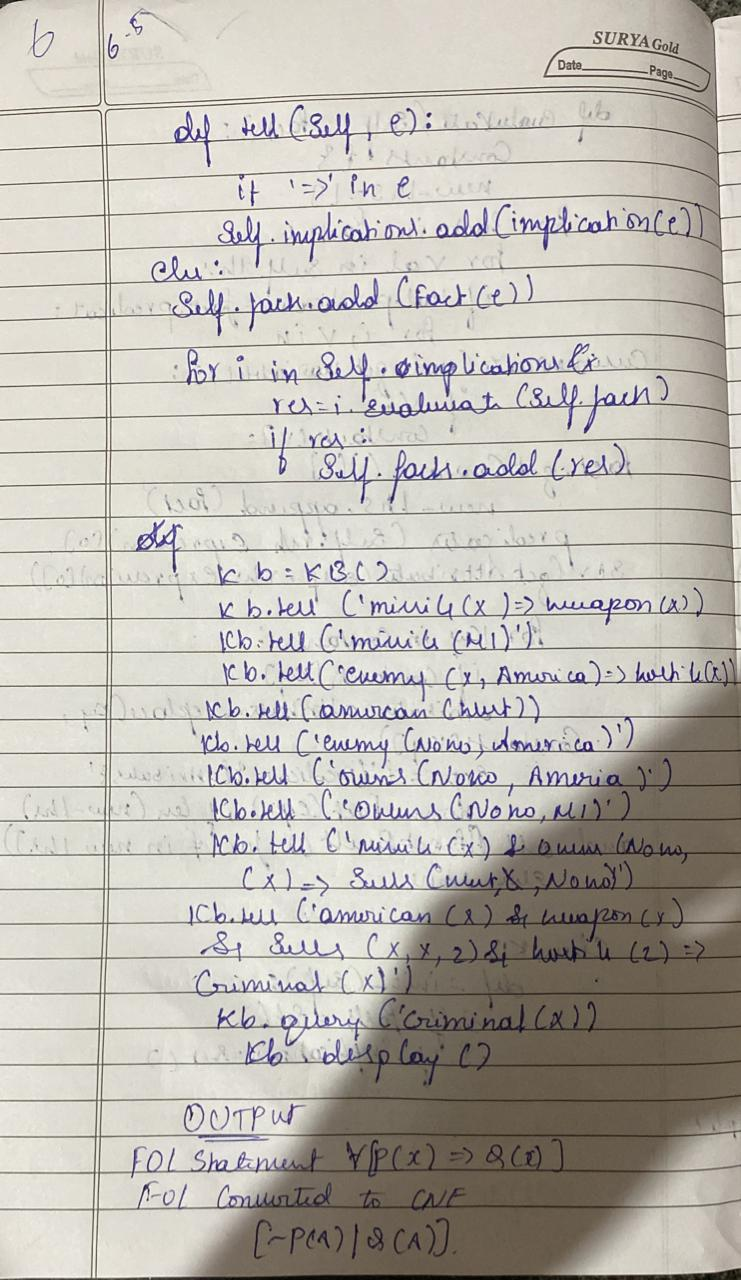 6
6-5
SURYA Gold
Date Page
def tell (Self, e):
if '=>' in e
Self.implications.add(implication(e))
Else:
Self.facts.add (Fact(e))
for i in Self.implications
res=i.evaluate (Self.facts)
if res:
Self.facts.add (res)
def
Kb = KB()
Kb.tell ('missile(x)=> weapon(x))
Kb.tell ('missile (M1)')
Kb.tell('enemy (x, America)=> hostile(x))
Kb.tell (american (West))
Kb.tell ('enemy (Nono, America)')
Kb.tell ('owns (Nono, Ameria)')
Kb.tell ('Owns (Nono, M1)')
Kb.tell ('missile (x) & owns (Nono,
(x) => Sells (West,x,Nono)')
Kb.tell ('american (x) & weapon(y)
& Sells (x, x, z) & hostile (z) =>
Criminal (x)')
Kb.query ('criminal (x))
Kb.display ()
OUTPUT
FOL Statement ∀[P(x) => Q(x)]
FOL Converted to CNF
[~P(A)|Q(A)].